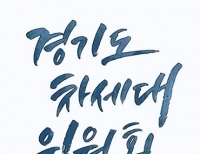 경기도
차세대
위원회